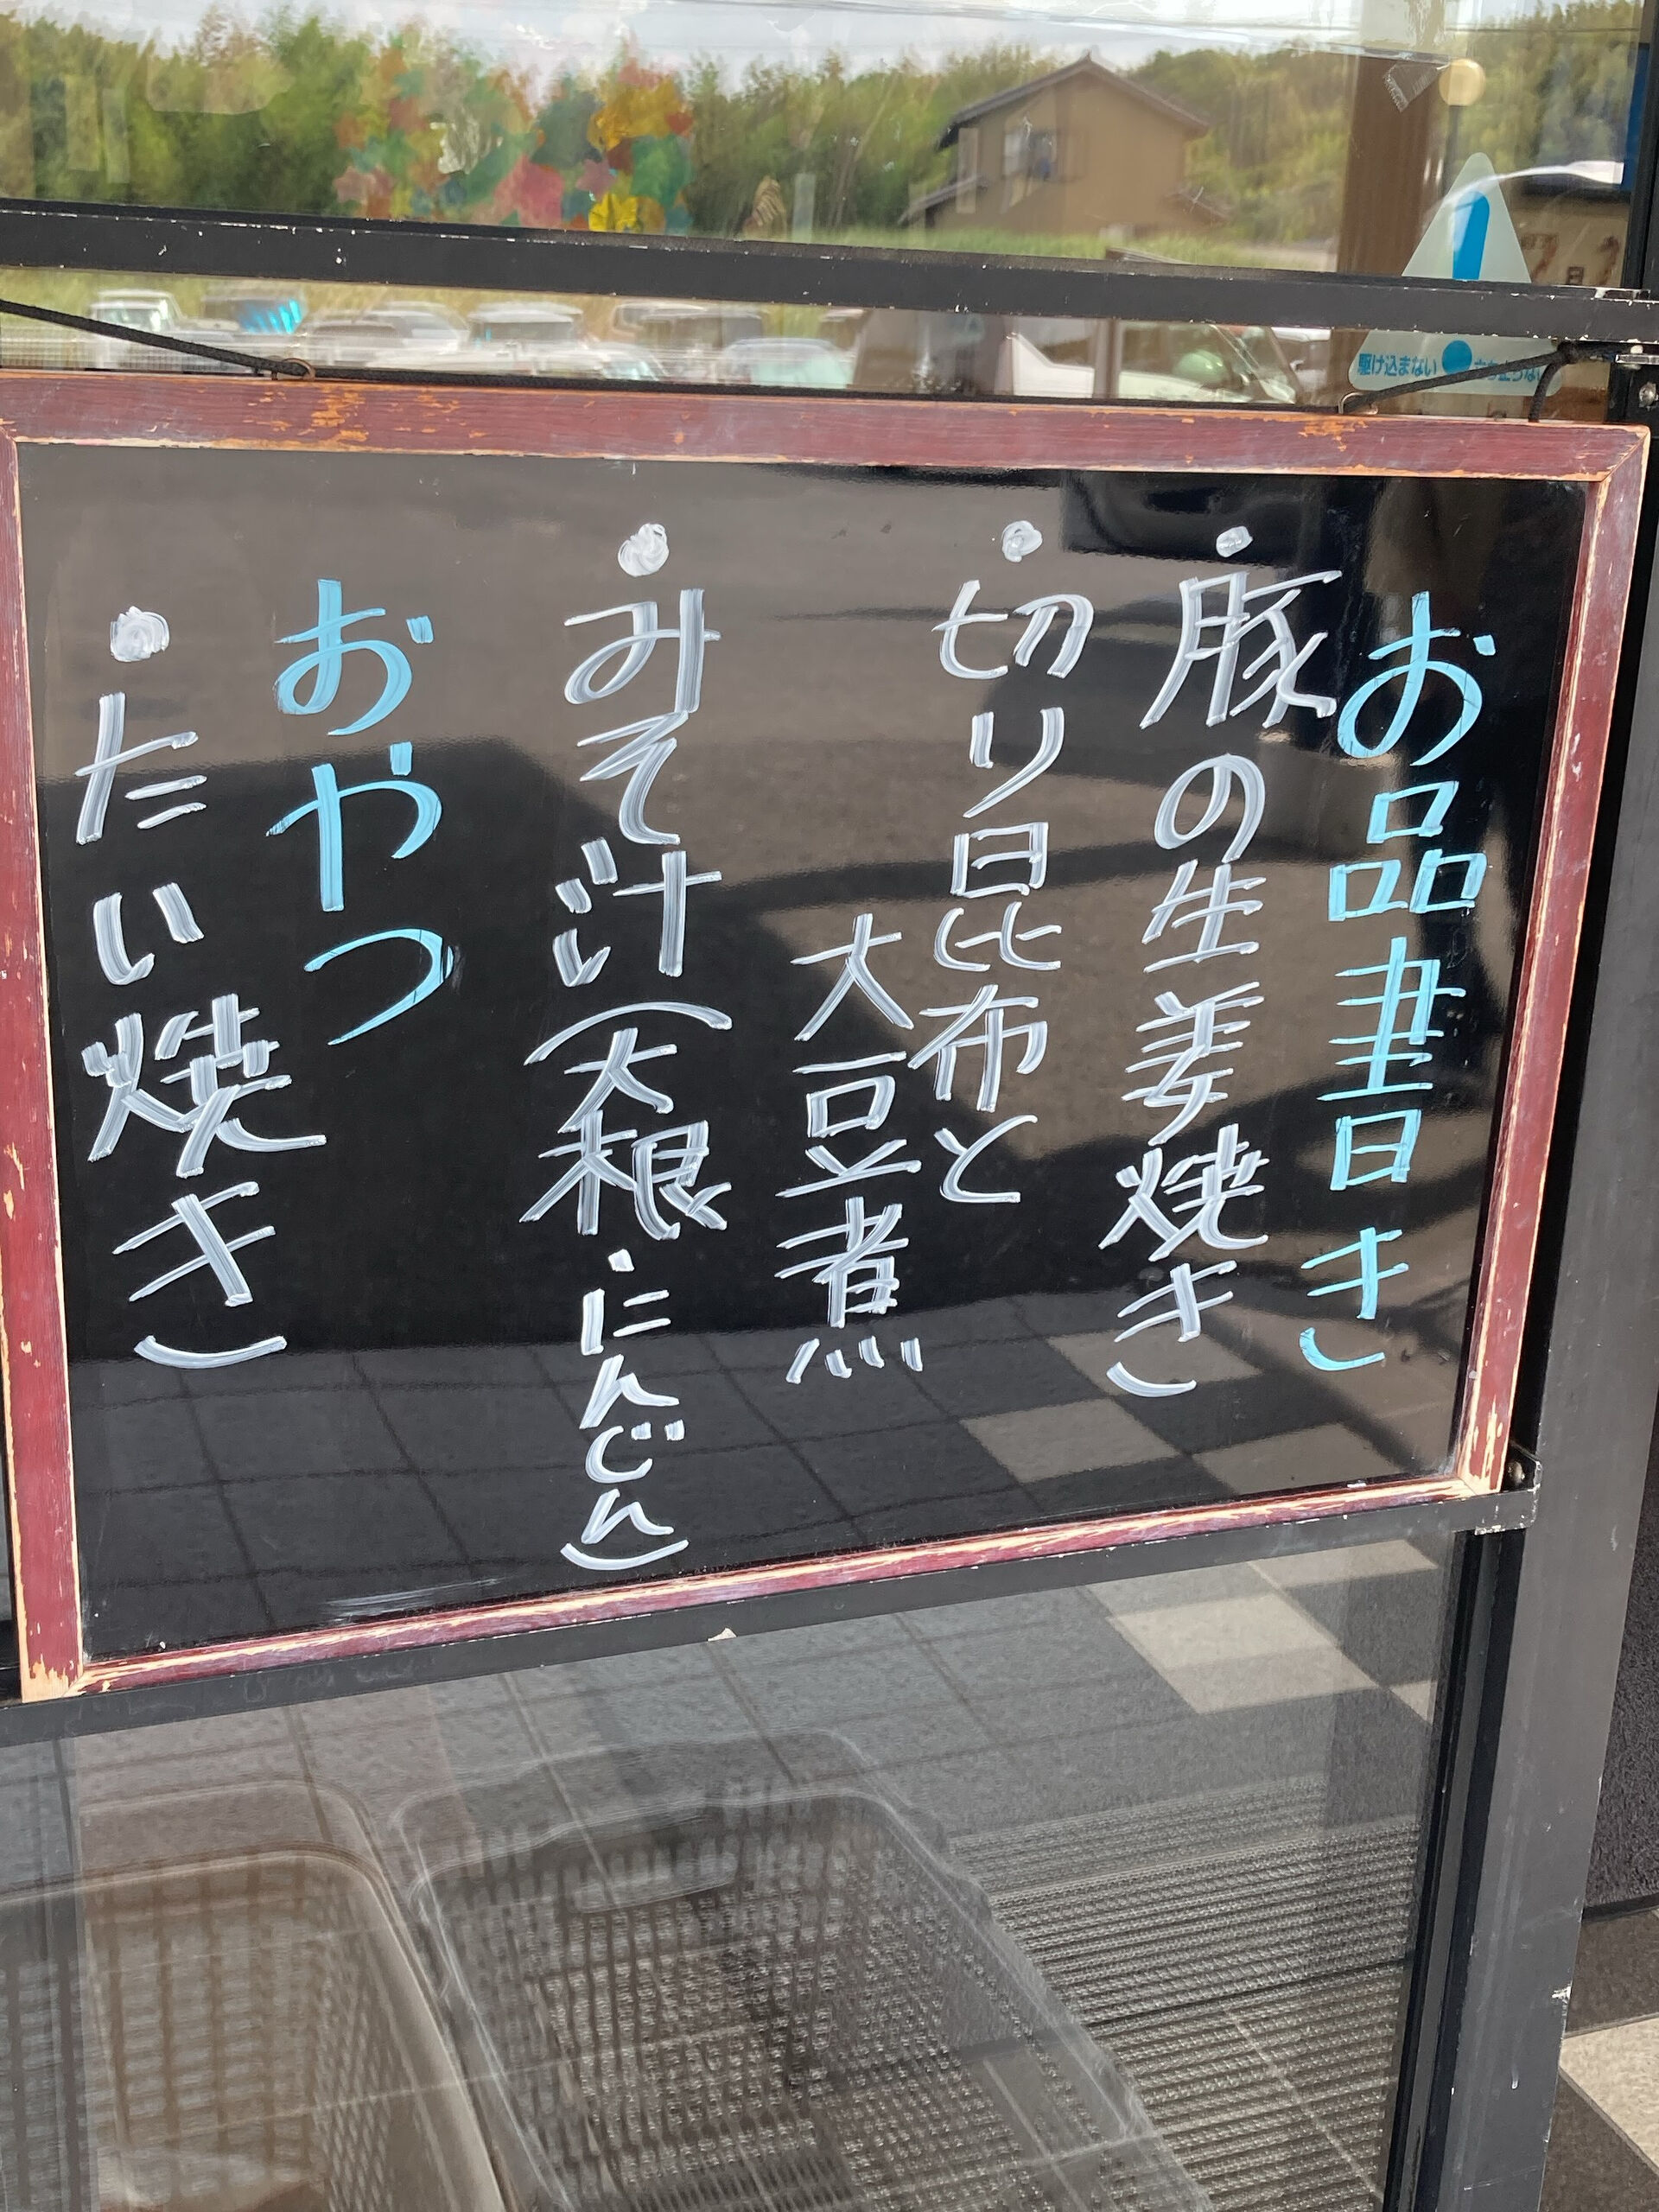 お品書き
・豚の生姜焼き
・切り昆布と
大豆煮
・みそ汁(大根・にんじん)
おやつ
・たい焼き
駆け込まない